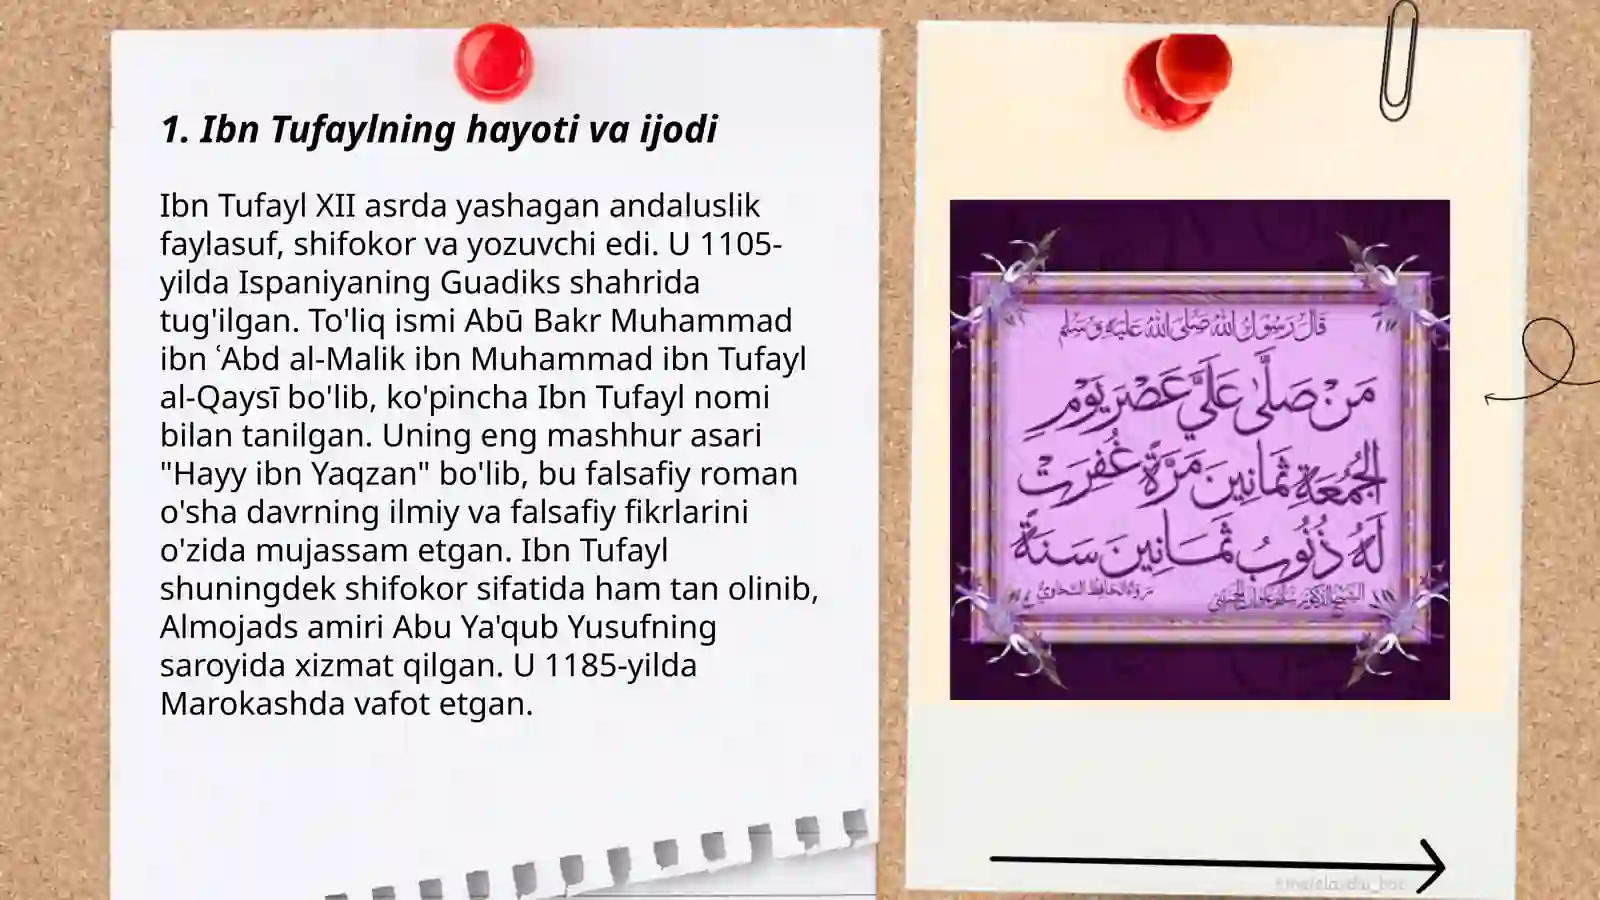 1. Ibn Tufaylning hayoti va ijodi
Ibn Tufayl XII asrda yashagan andaluslik
faylasuf, shifokor va yozuvchi edi. U 1105-
yilda Ispaniyaning Guadiks shahrida
tug'ilgan. To'liq ismi Abū Bakr Muhammad
ibn ʿAbd al-Malik ibn Muhammad ibn Tufayl
al-Qaysī bo'lib, ko'pincha Ibn Tufayl nomi
bilan tanilgan. Uning eng mashhur asari
"Hayy ibn Yaqzan" bo'lib, bu falsafiy roman
o'sha davrning ilmiy va falsafiy fikrlarini
o'zida mujassam etgan. Ibn Tufayl
shuningdek shifokor sifatida ham tan olinib,
Almojads amiri Abu Ya'qub Yusufning
saroyida xizmat qilgan. U 1185-yilda
Marokashda vafot etgan.
قال رسول الله صلى الله عليه وسلم
مَنْ صَلَّىٰ عَلَيَّ عَصْرَ يَوْمِ
الجُمُعَةِ ثَمَانِينَ مَرَّةً غُفِرَتْ
لَهُ ذُنُوبُ ثَمَانِينَ سَنَةً